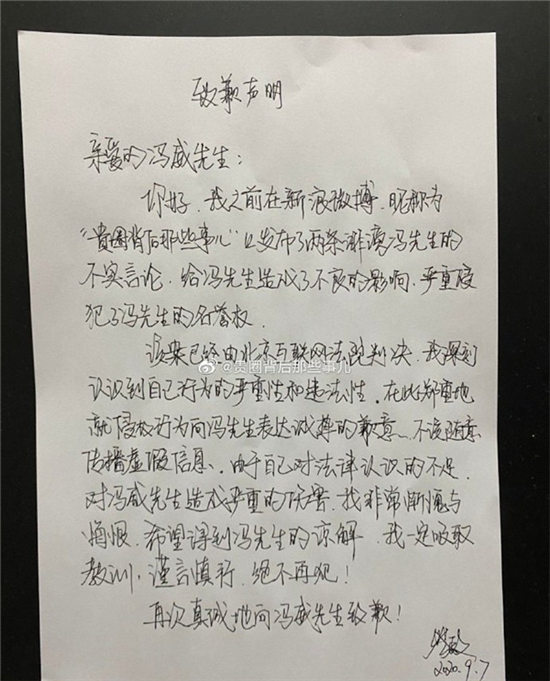 致歉声明
亲爱的冯威先生：
你好，我之前在新浪微博，昵称为
“贵圈背后那些事儿”上发布了两条诽谤冯先生的
不实言论，给冯先生造成了不良的影响，严重侵
犯了冯先生的名誉权。
该案已经由北京互联网法院判决，我深刻
认识到自己行为的严重性和违法性，在此郑重地
就侵权行为向冯先生表达诚挚的歉意，不该随意
传播虚假信息，由于自己对法律认识的不足，
对冯威先生造成严重的伤害，我非常惭愧与
悔恨，希望得到冯先生的谅解，我一定吸取
教训，谨言慎行，绝不再犯！
再次真诚地向冯威先生致歉！
2020.9.7
@贵圈背后那些事儿